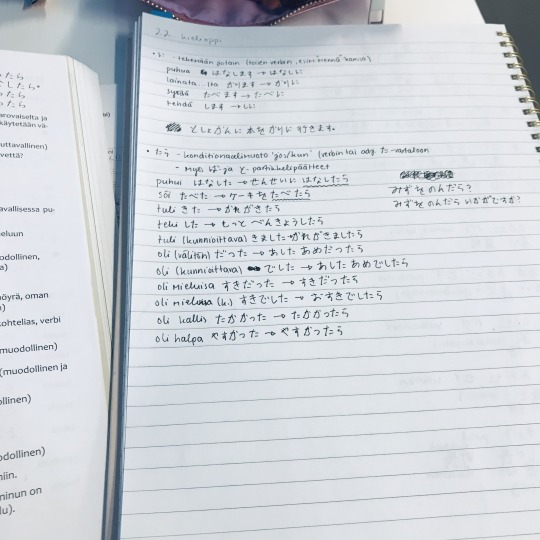 たら
でしたら。
たら
ったら
arovaiselta ja
käytetään vä-
uttavallinen)
vettä?
avallisessa pu-
eeluun
odollinen,
a)
höyrä, oman
kohtelias, verbi
muodollinen)
(muodollinen ja
ollinen)
odollinen)
iin.
minun on
lu).
22 kielioppi
• に - tekemään jotain (toisen verbin, esim. "mennä" kanssa)
puhua はなします → はなしに
lainata かります → かりに
syödä たべます → たべに
tehdä します → しに
としょかんに本をかりに行きます。
• たら - konditionaalimuoto "jos/kun" (verbin tai adj. た-vartaloon
- myös ば- ja と- partikkelipäätteet
puhui はなした → せんせいに はなしたら
söi たべた → ケーキを たべたら
みずをのんだら?
みずをのんだら いかがですか?
tuli きた → かれがきたら
teki した → もっと べんきょうしたら
tuli (kunnioittava) きました → かれがきましたら
oli (välitön) だった → あした あめだったら
oli (kunnioittava) でした → あした あめでしたら
oli mieluisa すきだった → すきだったら
oli mieluisa (k.) すきでした → おすきでしたら
oli kallis たかかった → たかかったら
oli halpa やすかった → やすかったら